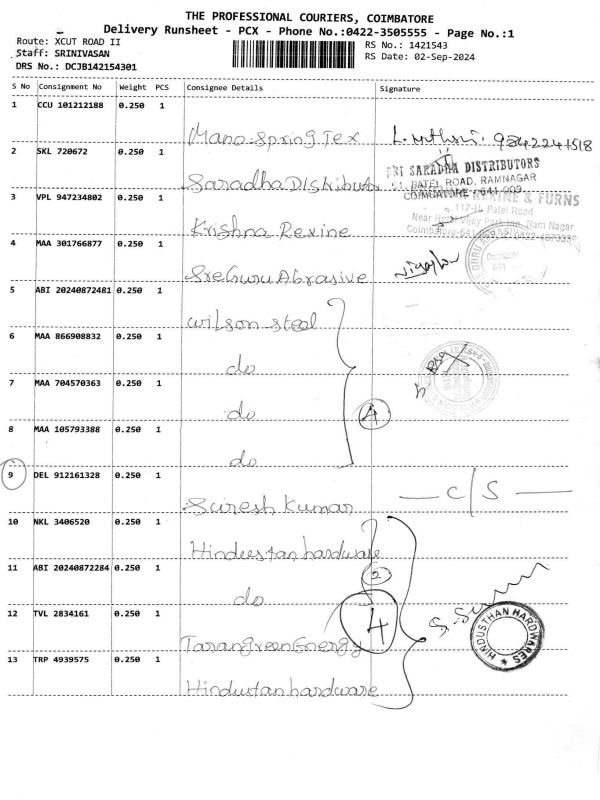 THE PROFESSIONAL COURIERS, COIMBATORE
Delivery Runsheet - PCX - Phone No.:0422-3505555 - Page No.:1
Route: XCUT ROAD II
Staff: SRINIVASAN
DRS No.: DCJB142154301
RS No.: 1421543
RS Date: 02-Sep-2024
S No Consignment No Weight PCS Consignee Details Signature
1 CCU 101212188 0.250 1
Mano Spring Tex 9842241518
2 SKL 720672 0.250 1
Saradha Distributo
SRI SARADHA DISTRIBUTORS
PATEL ROAD, RAMNAGAR
COIMBATORE - 641 009
3 VPL 947234802 0.250 1
Krishna Rexine
REXINE & FURNS
117-H, Patel Road
Ram Nagar
4 MAA 301766877 0.250 1
Sre Guru Abrasive
5 ABI 20240872481 0.250 1
Wilson steel
6 MAA 866908832 0.250 1
do
7 MAA 704570363 0.250 1
do
4
8 MAA 105793388 0.250 1
do
9 DEL 912161328 0.250 1
Suresh Kumar — C/S —
10 NKL 3406520 0.250 1
Hindustan hardware
11 ABI 20240872284 0.250 1
do
2
12 TVL 2834161 0.250 1
Taran green Energy
4
HINDUSTHAN HARDWARES
13 TRP 4939575 0.250 1
Hindustan hardware